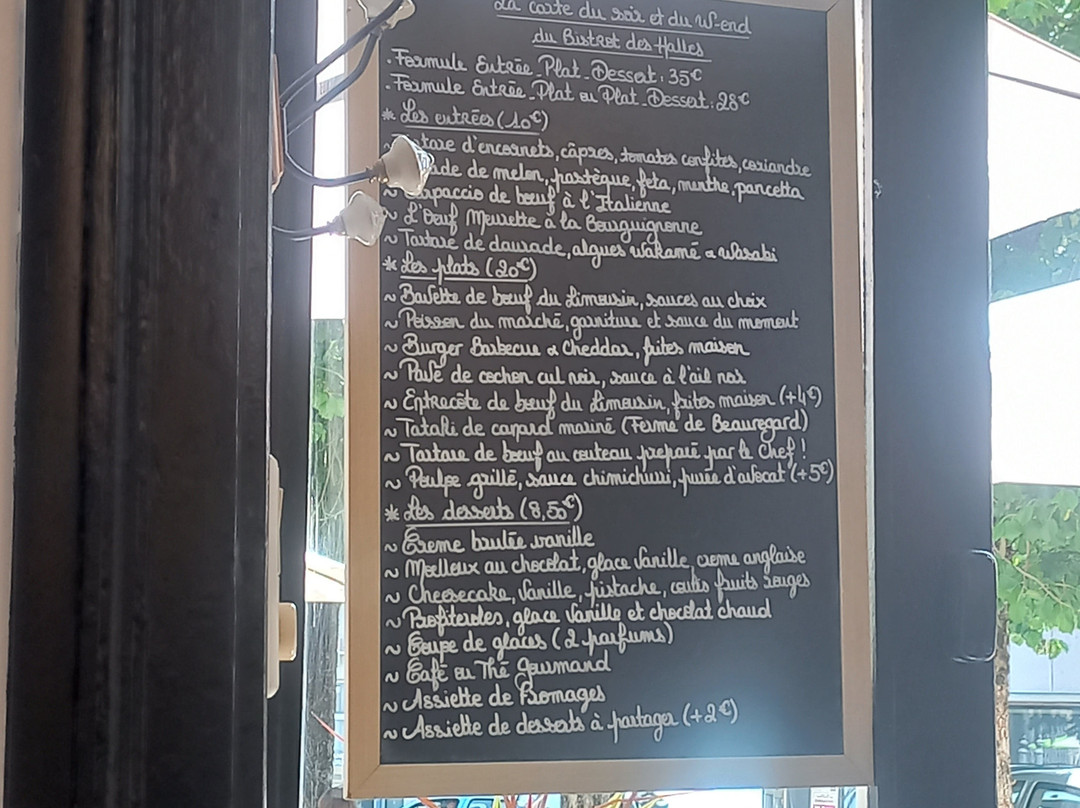 La carte du soir et du W-end
du Bistrot des Halles
- Formule Entrée_Plat_Dessert : 35€
- Formule Entrée_Plat ou Plat_Dessert : 28€
* Les entrées (10€)
d'encornets, câpres, tomates confites, coriandre
de melon, pastèque, feta, menthe, pancetta
~ Carpaccio de bœuf à l'Italienne
~ L'Oeuf Meurette à la Bourguignonne
~ Tartare de daurade, algues wakamé & Wasabi
* Les plats (20€)
~ Bavette de bœuf du Limousin, sauces au choix
~ Poisson du marché, garniture et sauce du moment
~ Burger Barbecue & Cheddar, frites maison
~ Pavé de cochon cul noir, sauce à l'ail noir
~ Entrecôte de bœuf du Limousin, frites maison (+4€)
~ Tataki de canard mariné (Ferme de Beauregard)
~ Tartare de bœuf au couteau préparé par le Chef !
~ Poulpe grillé, sauce chimichurri, purée d'avocat (+5€)
* Les desserts (8,50€)
~ Crème brulée vanille
~ Moelleux au chocolat, glace Vanille, crème anglaise
~ Cheesecake, Vanille, pistache, coulis fruits rouges
~ Profiteroles, glace Vanille et chocolat chaud
~ Coupe de glaces (2 parfums)
~ Café ou Thé Gourmand
~ Assiette de Fromages
~ Assiette de desserts à partager (+2€)